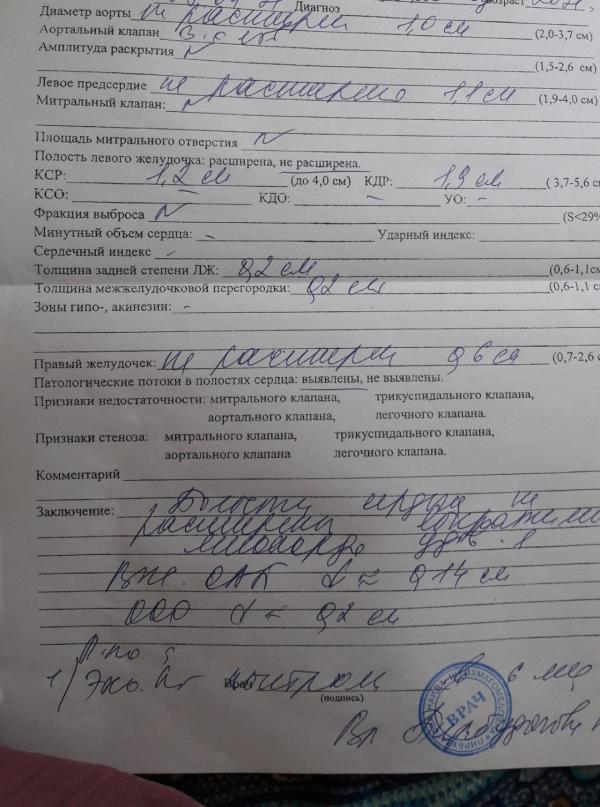 Диагноз
Диаметр аорты не расширен 1,0 см (2,0-3,7 см)
Аортальный клапан
Амплитуда раскрытия N
(1,5-2,6 см)
Левое предсердие не расширено 1,1 см (1,9-4,0 см)
Митральный клапан: N
Площадь митрального отверстия N
Полость левого желудочка: расширена, не расширена.
КСР: 1,2 см (до 4,0 см) КДР: 1,9 см ( 3,7-5,6 см
КСО: – КДО: – УО: –
Фракция выброса N (S<29%
Минутный объем сердца: – Ударный индекс:
Сердечный индекс –
Толщина задней степени ЛЖ: 0,2 см (0,6-1,1см
Толщина межжелудочковой перегородки: 0,2 см (0,6-1,1 с
Зоны гипо-, акинезии: –
Правый желудочек: не расширен 0,6 см (0,7-2,6
Патологические потоки в полостях сердца: выявлены, не выявлены.
Признаки недостаточности: митрального клапана, трикуспидального клапана,
аортального клапана, легочного клапана.
Признаки стеноза: митрального клапана, трикуспидального клапана,
аортального клапана легочного клапана.
Комментарий
Заключение: Полости сердца не
расширены
миокарда
0,14 см
ООО 0,2 см
1) Эхо-Кг контроль 6 мес
Врач
(подпись)
ВРАЧ